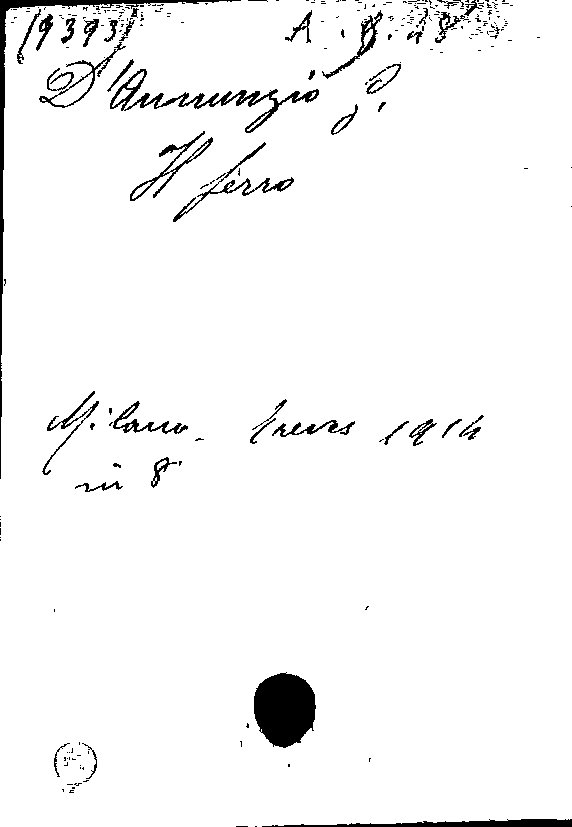 (9393) A. B. 18
D'Annunzio G.
Il ferro
Milano - Treves 1914
in 8°